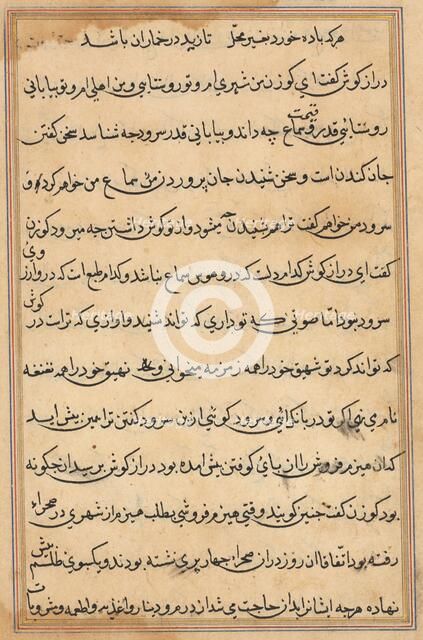 هر که باده خورد بغیر محل تا زید در خماران باشد
دراز کوش کفت ای کوزن من شهری ام و تو روستایی و من اهلی ام و تو بیابانی
روستائی قدر و قیمت سماع چه داند و بیابانی قدر سرود چه شناسد سخن کفتن
جان کندن است و سخن شنیدن جان پروردن من سماع من خواهم کرد و
سرود من خواهم کفت ترا هم شنیدن چه میشود و از کوش داشتن چه میرود کوزن
کفت ای دراز کوش کدام دلست که درو هوس سماع نباشد و کدام طبع است که درو آرزوی
سرود نبود اما صوتی که تو داری که تواند شنید و آوازی که تراست در کوش
که تواند کرد تو شهیق خود را همه زمزمه میخوانی و نهیق خود را همه نغمه
نام می نهی اکر تو در بانک آئی و سرود کوئی از آن سرود کفتن ترا همین پیش آید
که آن هیزم فروش را از پای کوفتن پیش آمده بود دراز کوش پرسید آن چکونه
بود کوزن کفت چنین کویند وقتی هیزم فروشی بطلب هیزم از شهری در صحرا
رفته بود اتفاقا آن روز در آن صحرا چهار پری نشسته بودند و یک سبوی طلسم پیش
نهاده هر چه ایشانرا بدان حاجت می شد از درم و دینار و اغذیه و اطعمه و مشروبات